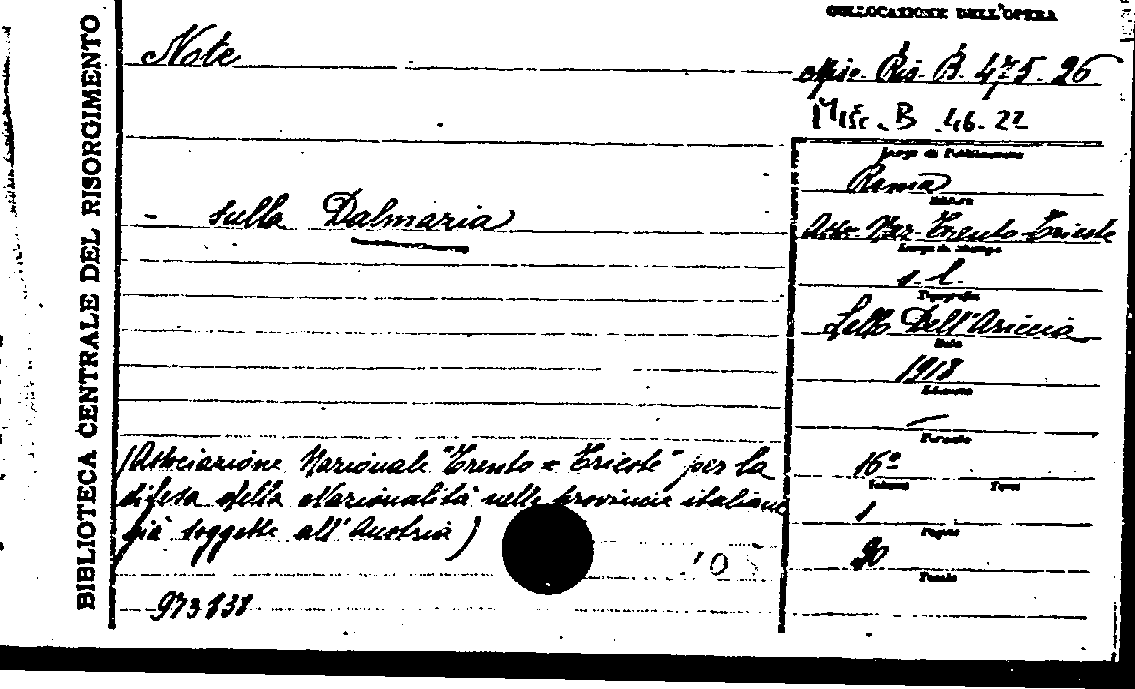 BIBLIOTECA CENTRALE DEL RISORGIMENTO
Note
- sulla Dalmazia
(Associazione Nazionale "Trento = Trieste" per la
difesa della Nazionalità nelle provincie italiane
già soggette all'Austria)
105
973831
COLLOCAZIONE DELL'OPERA
Misc. Ris. B. 475. 26
Misc. B 46. 22
Luogo di Pubblicazione
Roma
Editore
Ass. Naz. Trento-Trieste
Luogo di stampa
s. l.
Tipografia
Lello Dell'Ariccia
Data
1918
Edizione
—
Formato
16°
Volumi Tomi
1
Pagine
20
Tavole